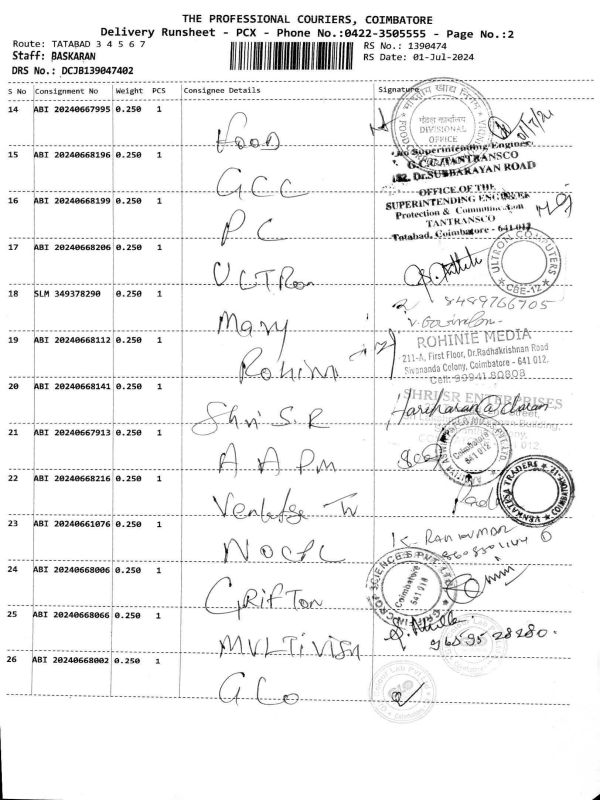 THE PROFESSIONAL COURIERS, COIMBATORE
Delivery Runsheet - PCX - Phone No.:0422-3505555 - Page No.:2
Route: TATABAD 3 4 5 6 7
RS No.: 1390474
Staff: BASKARAN
RS Date: 01-Jul-2024
DRS No.: DCJB139047402
S No Consignment No Weight PCS Consignee Details Signature
14 ABI 20240667995 0.250 1
Food
DIVISIONAL OFFICE
15 ABI 20240668196 0.250 1
Superintending Engineer
G.C.C/TANTRANSCO
182, Dr.SUBBARAYAN ROAD
GCC
16 ABI 20240668199 0.250 1
OFFICE OF THE
SUPERINTENDING ENGINEER
Protection & Communication
TANTRANSCO
Tatabad, Coimbatore - 641 012
PC
17 ABI 20240668206 0.250 1
ULTRON COMPUTERS
CBE-12
ULTRon
18 SLM 349378290 0.250 1
8489766705
Mary
19 ABI 20240668112 0.250 1
ROHINIE MEDIA
211-A, First Floor, Dr.Radhakrishnan Road
Sivananda Colony, Coimbatore - 641 012.
Cell: 99941 80808
Rohini
20 ABI 20240668141 0.250 1
SHRI SR ENTERPRISES
Shri S.R
21 ABI 20240667913 0.250 1
Coimbatore
641 012
AAPM
22 ABI 20240668216 0.250 1
VENKATESA TRADERS
COIMBATORE-12
23 ABI 20240661076 0.250 1
K. RAMKUMAR
24 ABI 20240668006 0.250 1
Coimbatore
641 018
GRifTon
25 ABI 20240668066 0.250 1
96595 28280
MULTiVisn
26 ABI 20240668002 0.250 1
GLo